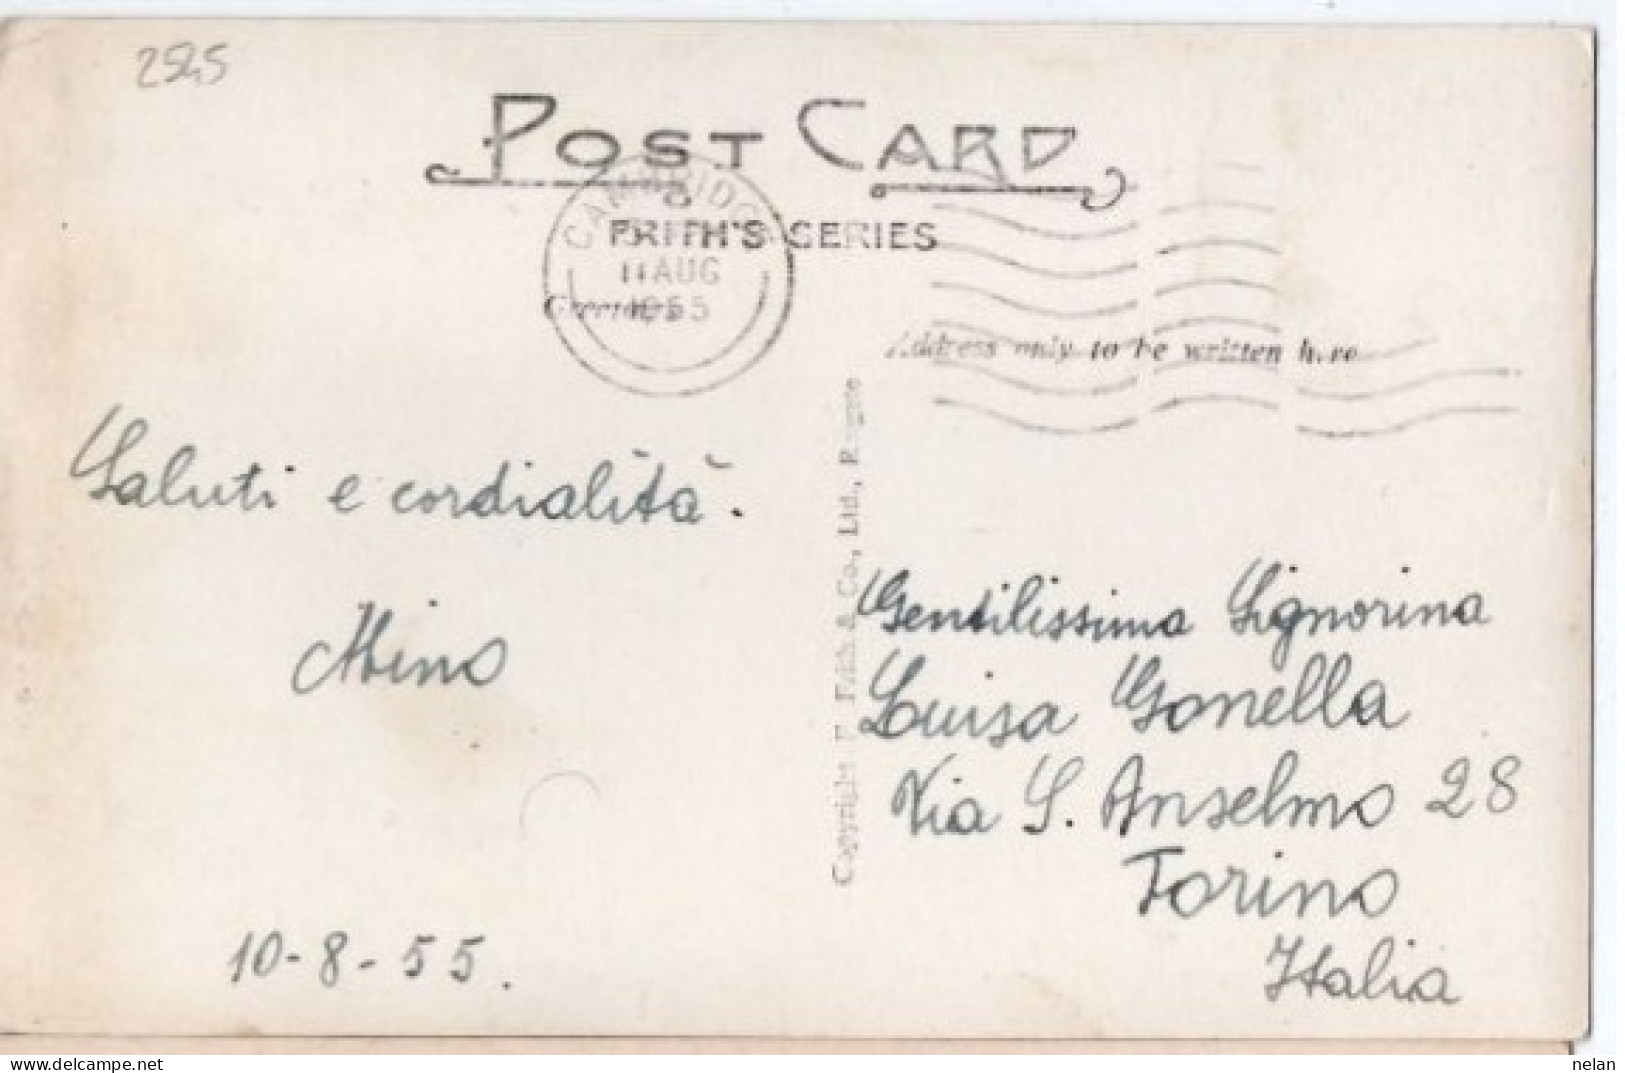 2545
POST CARD
FRITH'S SERIES
CAMBRIDGE
11 AUG
1955
Greetings
Address only to be written here
Saluti e cordialità.
Mino
10-8-55.
Copyright F. Frith & Co., Ltd., Reigate
Gentilissima Signorina
Luisa Gonella
Via S. Anselmo 28
Torino
Italia
www.delcampe.net
nelan